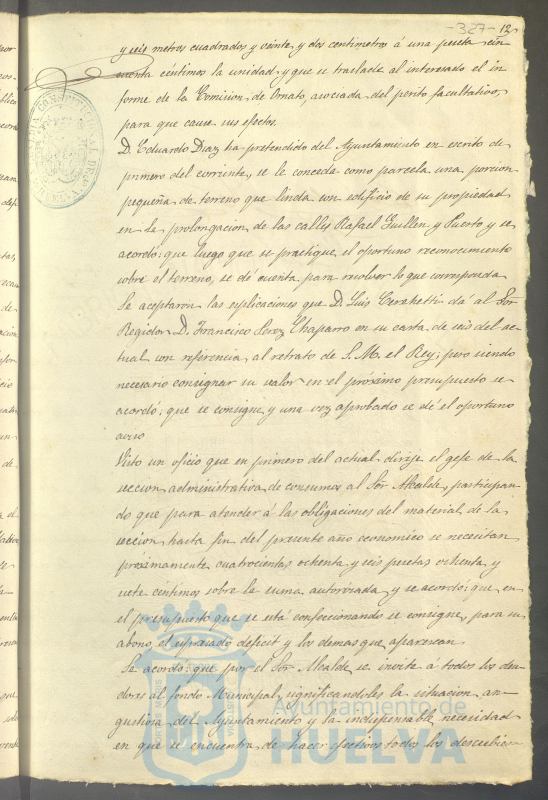 -327- 12
y seis metros cuadrados y veinte y dos centimetros á una peseta cin
cuenta céntimos la unidad y que se traslade al interesado el in
forme de la Comision de Ornato, asociada del perito facultativo,
para que cause sus efectos.
D. Eduardo Diaz ha pretendido del Ayuntamiento en escrito de
primero del corriente, se le conceda como parcela una porcion
pequeña de terreno que linda con edificio de su propiedad
en la prolongacion de las calles Rafael Guillen y Puerto y se
acordó: que luego que se practique el oportuno reconocimiento
sobre el terreno, se dé cuenta para resolver lo que corresponda
Se aceptaron las esplicaciones que D. Luis dá al Sor
Regidor D. Francisco Perez Chaparro en su carta de seis del ac
tual con referencia al retrato de S. M. el Rey; pero siendo
necesario consignar su valor en el próximo presupuesto se
acordó; que se consigne y una vez aprobado se dé el oportuno
aviso
Visto un oficio que en primero del actual dirije el gefe de la
seccion administrativa de consumos al Sor Alcalde, participan
do que para atender á las obligaciones del material de la
seccion hasta fin del presente año economico se necesitan
próximamente cuatrocientas ochenta y seis pesetas ochenta y
siete centimos sobre la suma autorizada y se acordó: que en
el presupuesto que se está confeccionando se consigne para su
abono el espresado deficit y los demas que aparezcan
Se acordó: que por el Sor Alcalde se invite á todos los deu
dores al fondo Municipal, significandoles la situacion an
gustiosa del Ayuntamiento y la indispensable necesidad
en que se encuentra de hacer efectivos todos los descubier
Ayuntamiento de
HUELVA